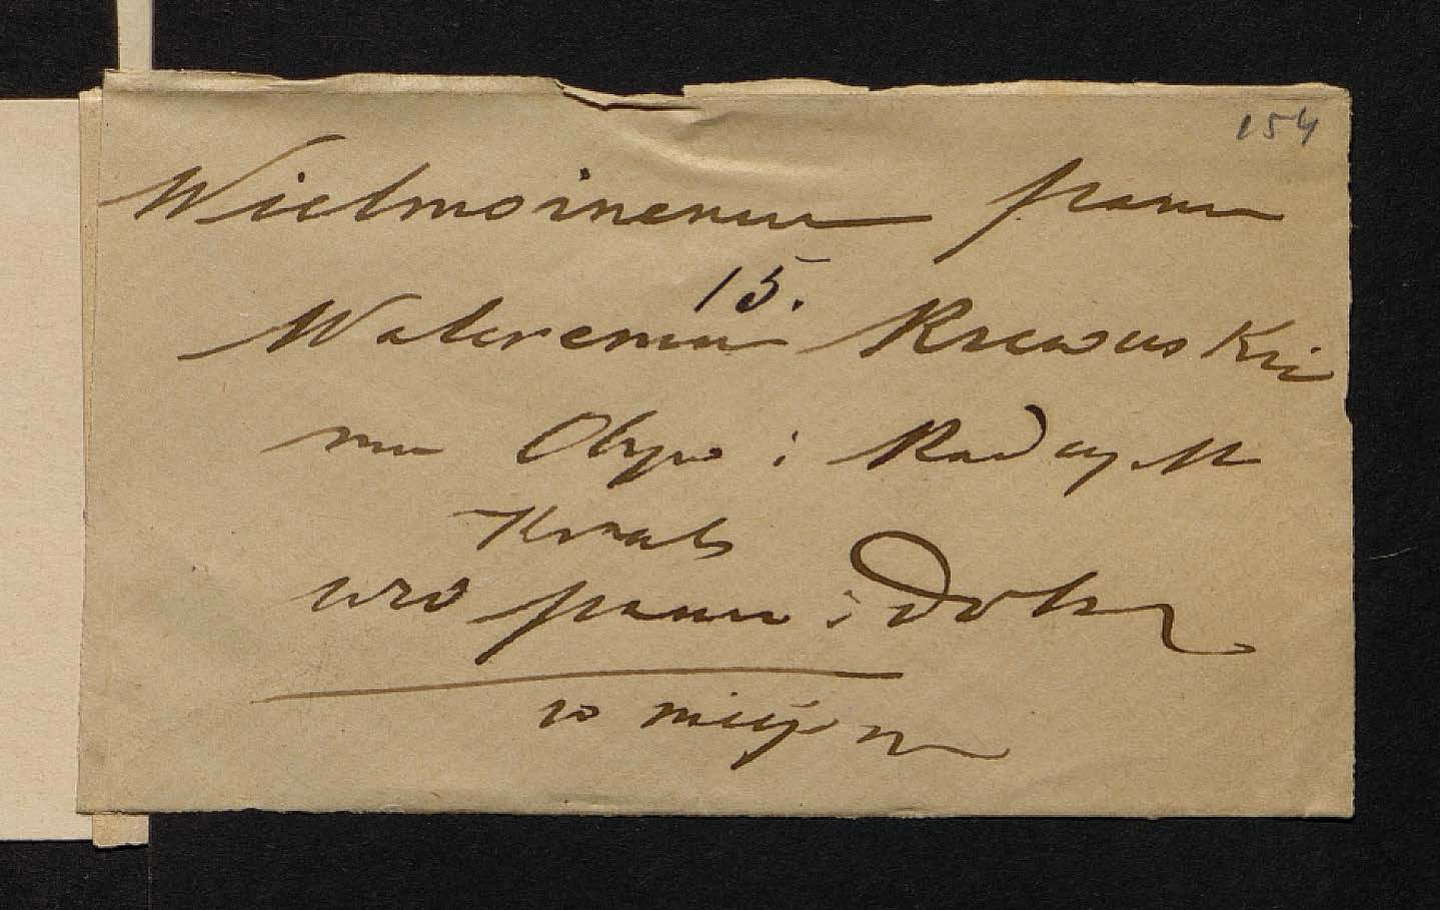 154
Wielmożnemu panu
15.
Waleremu Rzewuski
mu Obyw i Radcy M
Krak
wró panu i Dobr
w miejscu